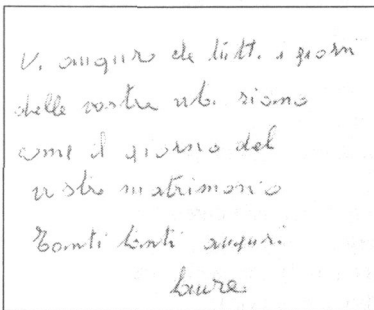 Vi auguro che tutti i giorni
della vostra vita siano
come il giorno del
vostro matrimonio
Tanti tanti auguri
Laura